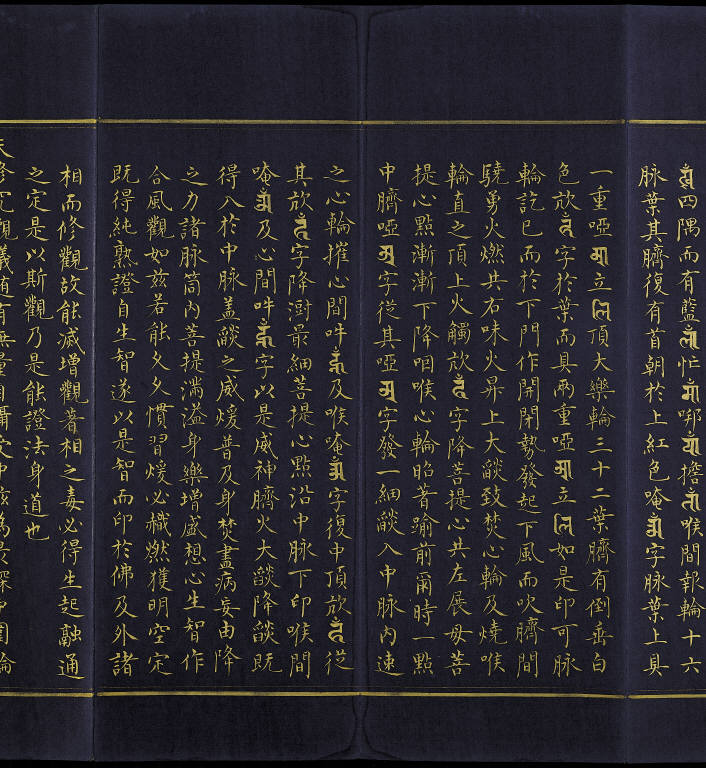 四隅而有藍忙啷擔喉間報輪十六
脉葉其臍復有首朝於上紅色唵字脉葉上具
一重啞立頂大樂輪三十二葉臍有倒垂白
色㰠字於葉而具兩重啞立如是印可脉
輪訖已而於下門作開閉勢發起下風而吹臍間
驍勇火燃共右味火昇上大燄致焚心輪及燒喉
輪直之頂上火觸㰠字降菩提心共左展母菩
提心點漸漸下降咽喉心輪昭著踰前爾時一點
中臍啞字從其啞字發一細燄入中脉內速
之心輪摧心間吽及喉唵字復中頂㰠從
其㰠字降澍最細菩提心點沿中脉下印喉間
唵及心間吽字以是威神臍火大燄降燄既
得入於中脉盖燄之威煖普及身焚盡病妄由降
之力諸脉筒內菩提滿溢身樂增盛想心生智作
合風觀如茲若能夂夂慣習煖必熾燃獲明空定
既得純熟證自生智遂以是智而印於佛及外諸
相而修觀故能滅增觀著相之毒必得生起融通
之定是以斯觀乃是能證法身道也